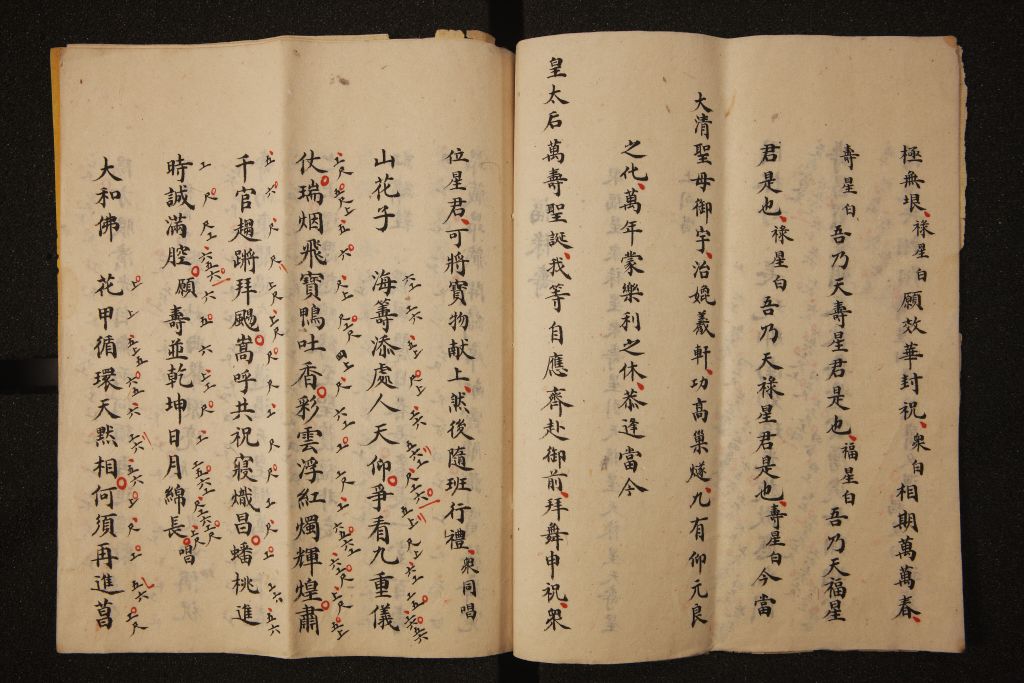 極無垠祿星白願效華封祝衆白相期萬萬春
壽星白吾乃天壽星君是也福星白吾乃天福星
君是也祿星白吾乃天祿星君是也壽星白今當
大清聖母御宇治媲羲軒功高巢燧九有仰元良
之化萬年蒙樂利之休恭逢當今
皇太后萬壽聖誕我等自應齊赴御前拜舞申祝衆
位星君可將寶物献上然後隨班行禮衆同唱
山花子 海籌添處人天仰爭看九重儀
仗瑞烟飛寶鴨吐香彩雲浮紅燭輝煌肅
千官趨蹡拜颺嵩呼共祝寢熾昌蟠桃進
時誠滿腔願壽並乾坤日月綿長唱
大和佛 花甲循環天黙相何須再進菖